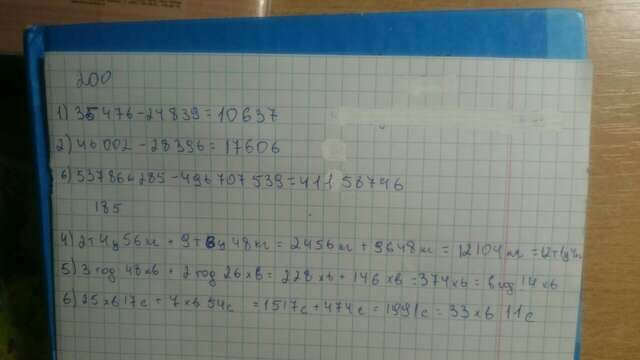 200
1) 35476-24839=10637
2) 46002-28396=17606
6) 537866285-496707539=41158746
185
4) 2т4ц56кг + 9т6ц48кг = 2456кг + 9648кг = 12104кг =
5) 3год 48хв + 2год 26хв = 228хв + 146хв = 374хв = 6год 14хв
6) 25хв17с + 7хв54с = 1517с + 474с = 1991с = 33хв 11с